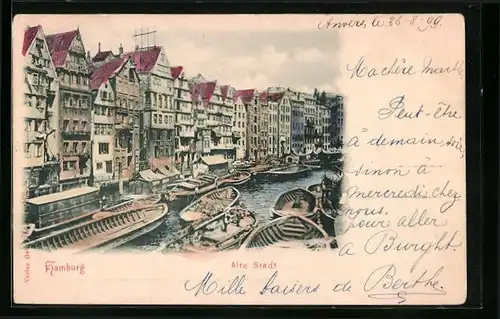 Anvers, le 28-8-99.
Ma chère
Peut-être
à demain soir
sinon à
mercredi chez
nous, pour aller
à Burght.
Mille baisers de Berthe
Hamburg
Alte Stadt
Verlag